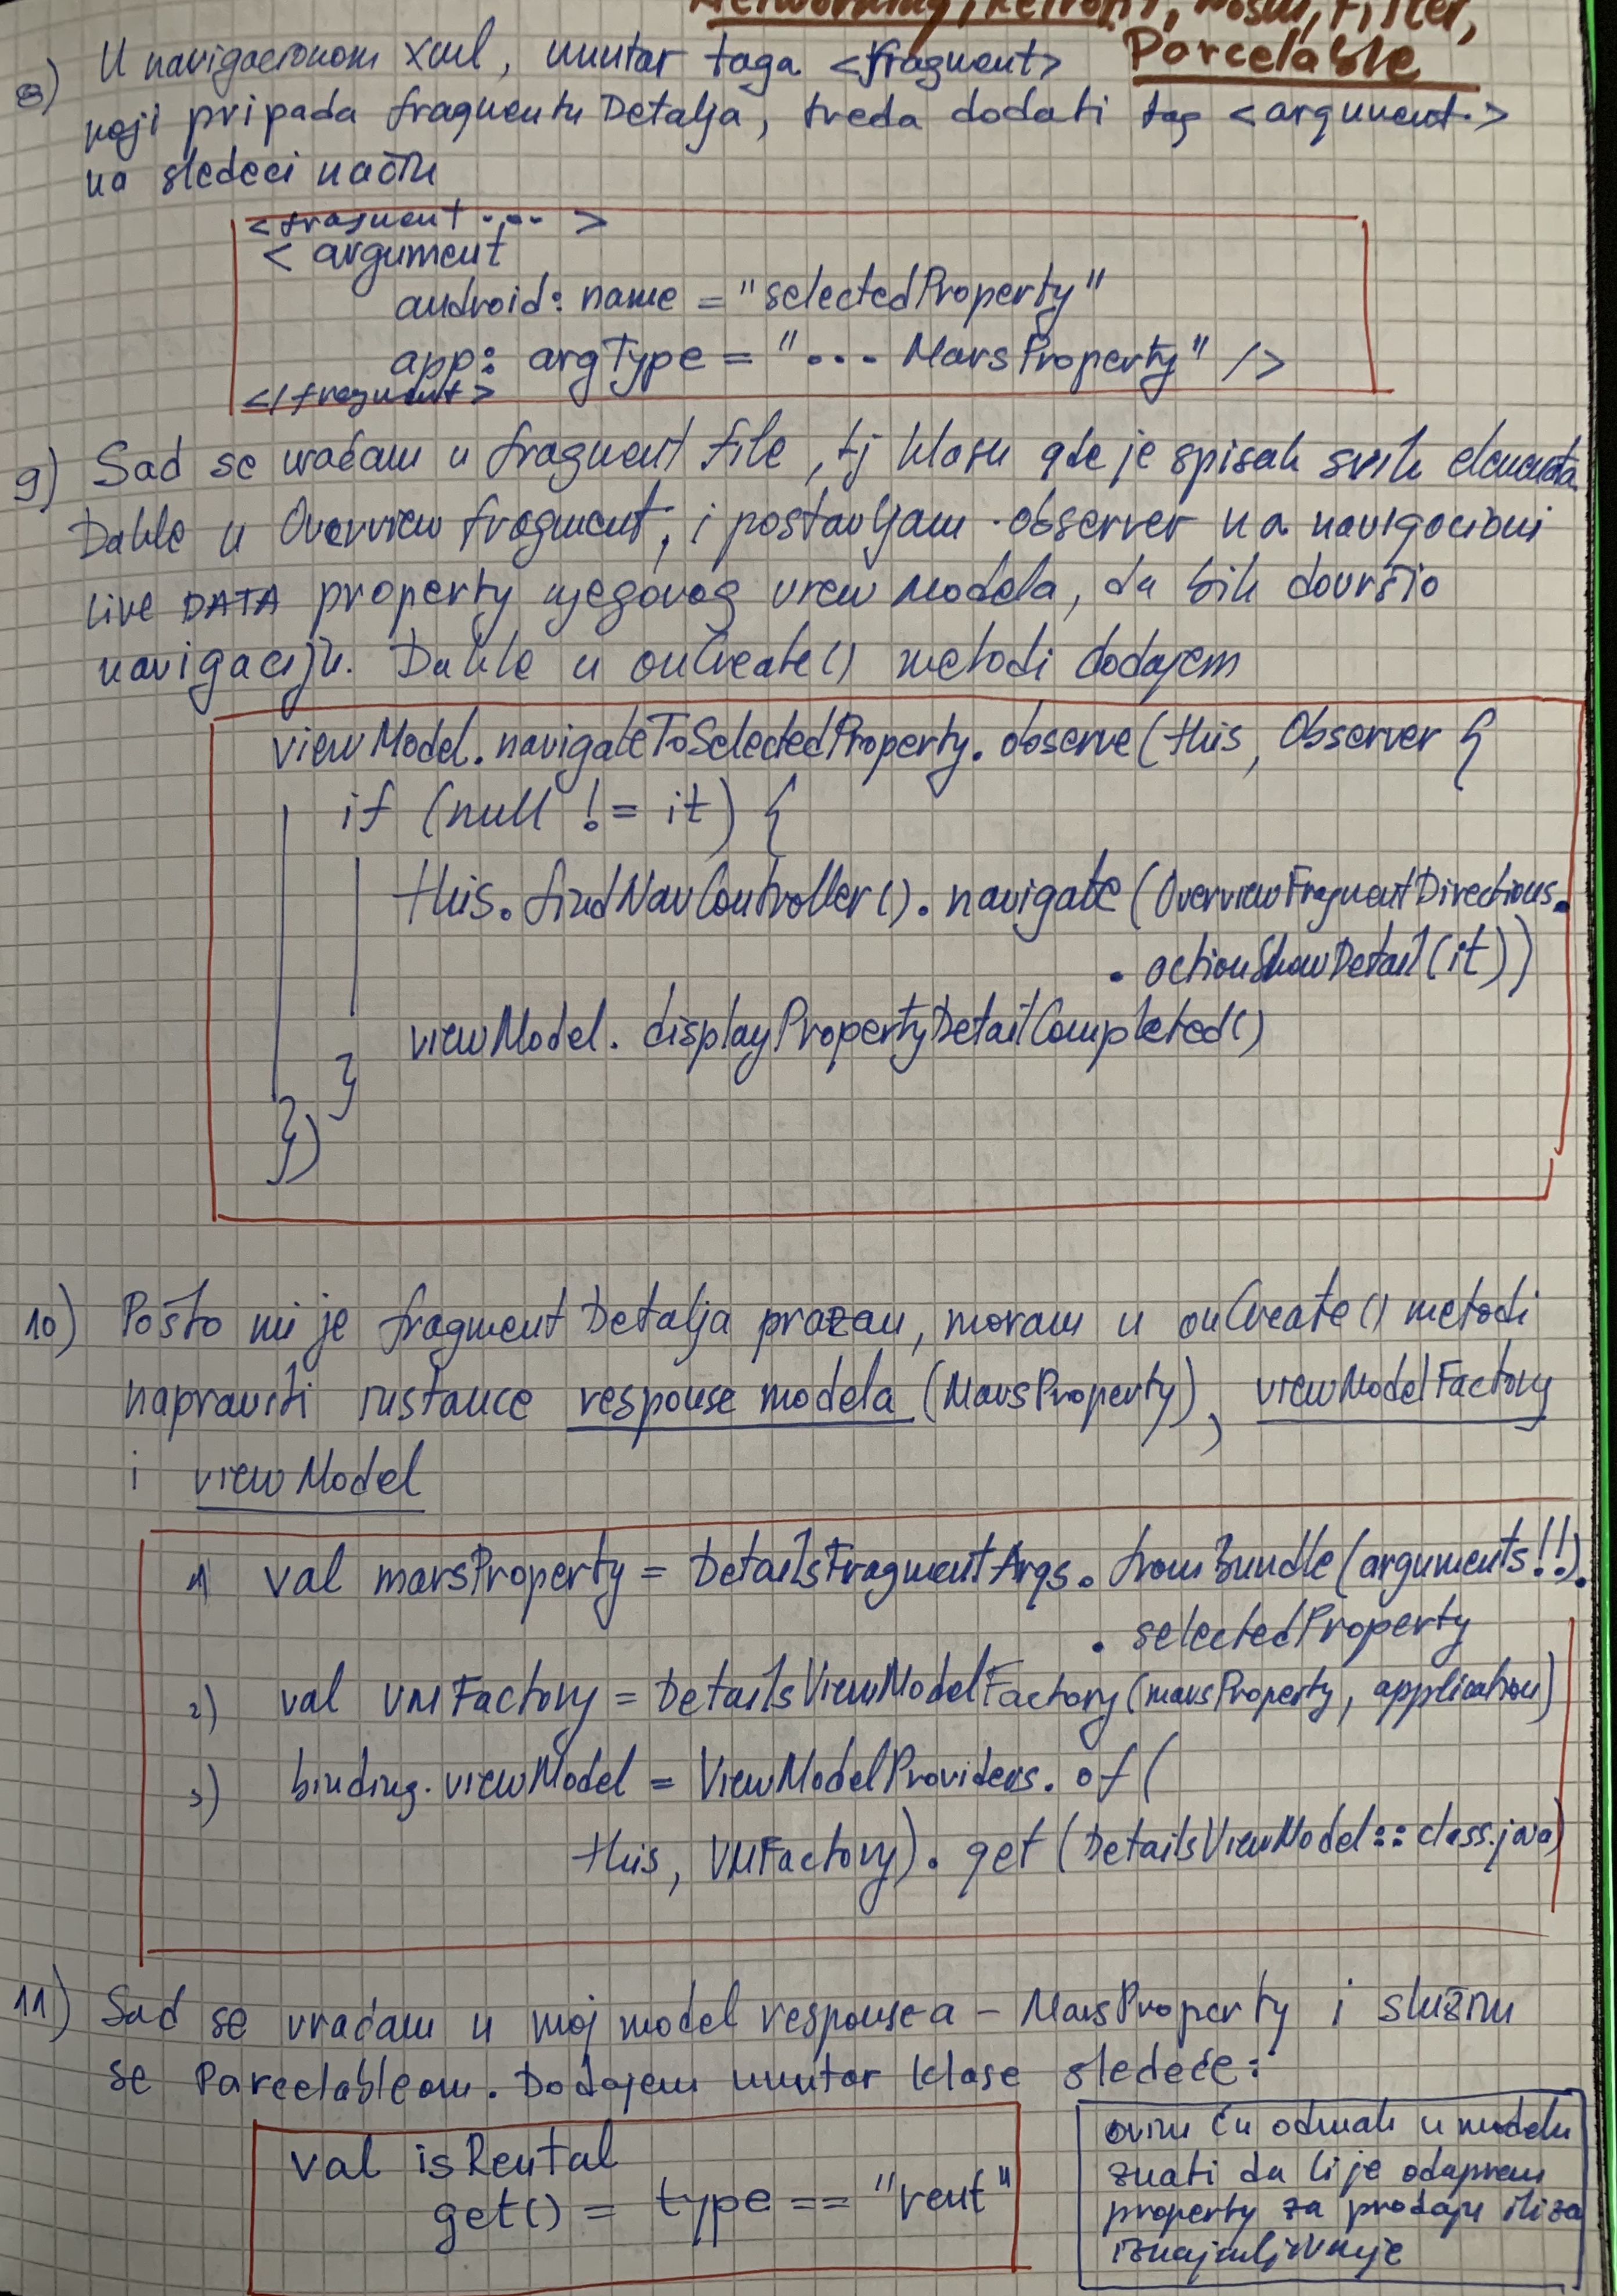 Networking, Retrofit, Moshi, Filter,
Parcelable
8) U navigacionom xml, unutar taga <fragment>
koji pripada fragmentu Detalja, treba dodati tag <argument.>
na sledeci način
<fragment ... >
< argument
android: name = "selectedProperty"
app: argType = "... MarsProperty" />
</fragment>
9) Sad se vraćam u fragment file, tj klasu gde je spisak svih elemenata.
Dakle u Overview fragment, i postavljam observer na navigacioni
live DATA property njegovog view Modela, da bih dovršio
navigaciju. Dakle u onCreate() metodi dodajem
viewModel.navigateToSelectedProperty.observe(this, Observer {
if (null != it) {
this.findNavController().navigate(OverviewFragmentDirections.
.actionShowDetail(it))
viewModel. displayPropertyDetailCompleted()
}
})
10) Pošto mi je fragment Detalja prazan, moram u onCreate() metodi
napraviti instance response modela (MarsProperty), viewModelFactory
i viewModel
1 val marsProperty = DetailsFragmentArgs.fromBundle(arguments!!).
.selectedProperty
2) val VMFactory = DetailsViewModelFactory(marsProperty, application)
3) binding.viewModel = ViewModelProviders.of(
this, VMFactory).get(DetailsViewModel::class.java)
11) Sad se vraćam u moj model response-a - MarsProperty i služim
se Parcelableom. Dodajem unutar klase sledeće:
val isRental
get() = type == "rent"
ovim ću odmah u modelu
znati da li je odapren
property za prodaju ili za
iznajmljivanje